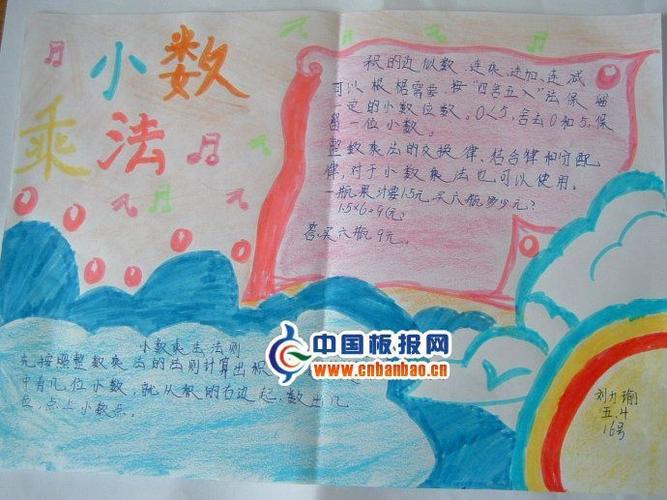 小数
乘法
积的近似数、连乘、连加、连减
可以根据需要，按“四舍五入”法保留
一定的小数位数。0<5，舍去0和5，保
留一位小数。
整数乘法的交换律、结合律和分配
律，对于小数乘法也可以使用。
一瓶果汁要1.5元 买六瓶多少元？
1.5×6=9(元)
答买六瓶9元。
中国板报网
www.cnbanbao.cn
小数乘法法则
先按照整数乘法的法则计算出积
中有几位小数，就从积的右边起，数出几
位，点上小数点。
刘力瑜
五.4
16号